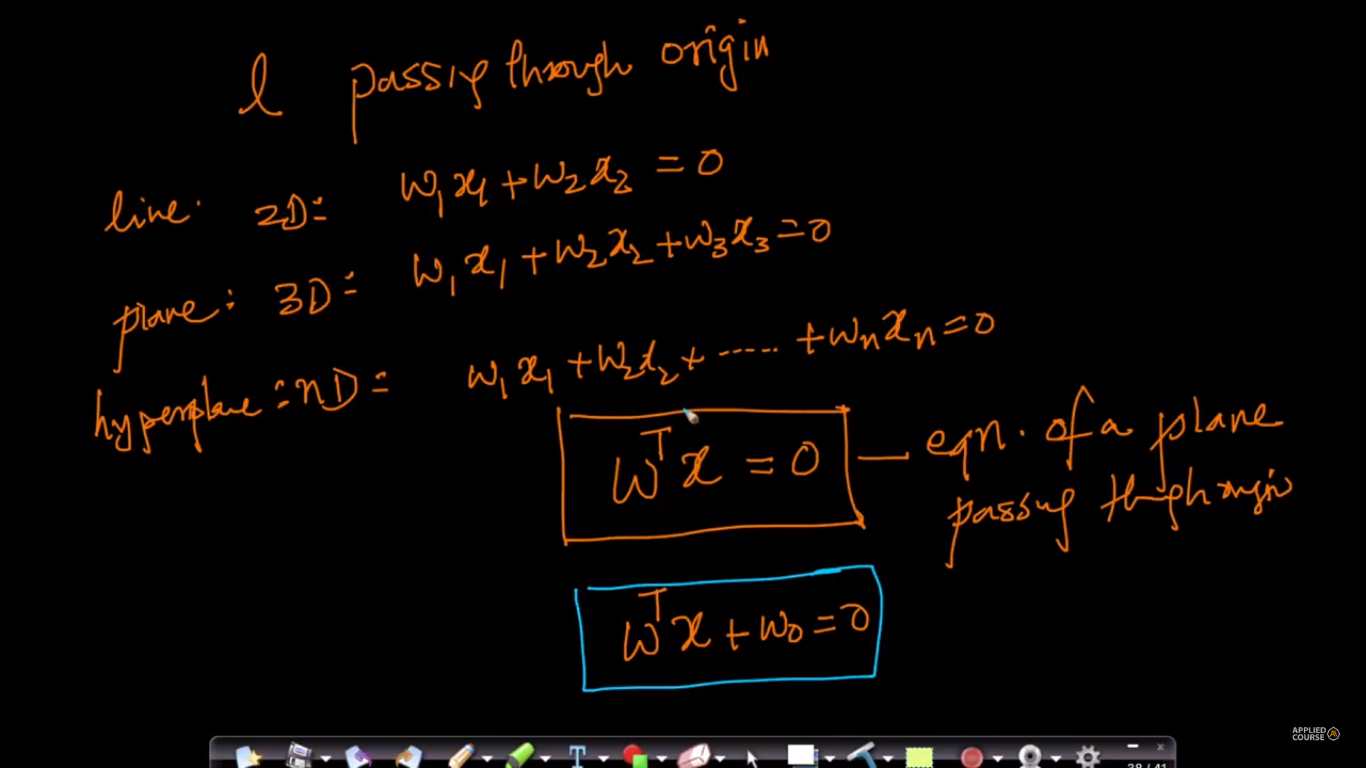 l passing through origin
line. 2D: w₁x₁ + w₂x₂ = 0
plane: 3D: w₁x₁ + w₂x₂ + w₃x₃ = 0
hyperplane: nD: w₁x₁ + w₂x₂ + ...... + wₙxₙ = 0
wᵀx = 0 — eqn. of a plane
passing through origin
wᵀx + w₀ = 0
T
38 / 41
APPLIED
COURSE